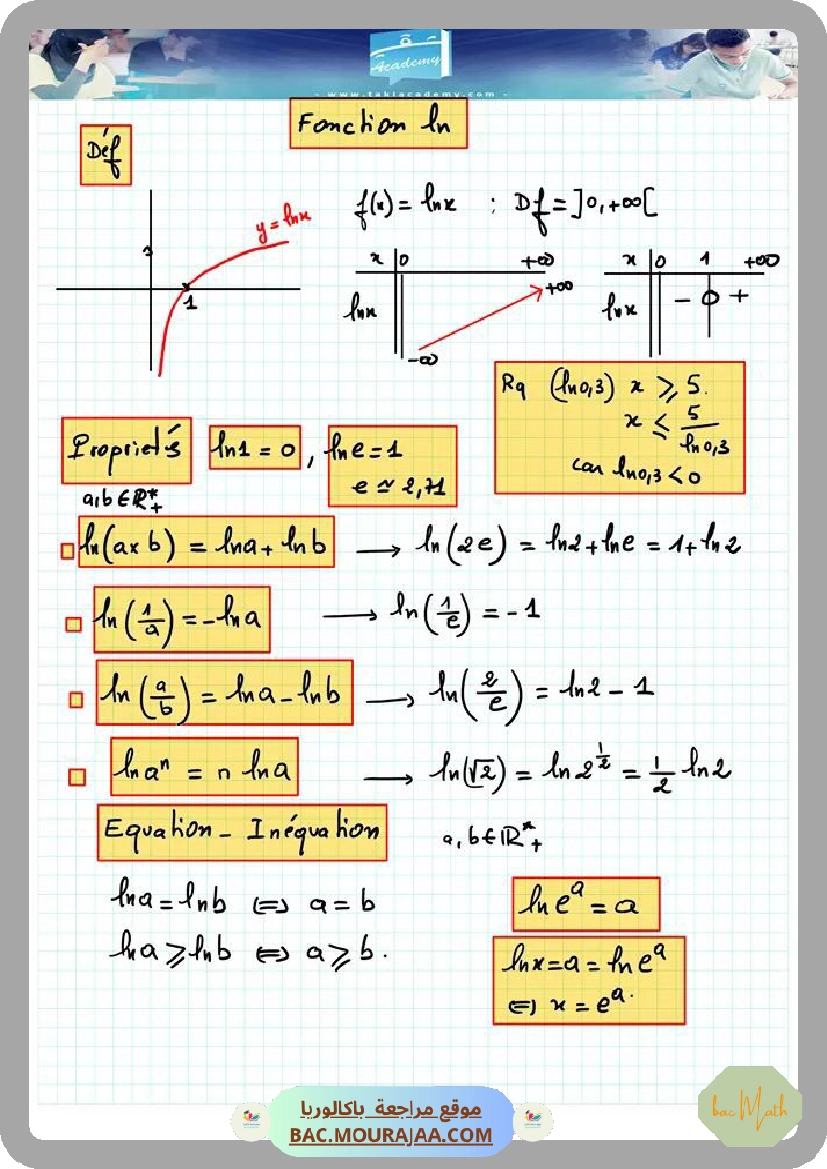 Academy
- www.takiacademy.com -
Fonction ln
Déf
y = lnx
1
f(x) = lnx : Df = ]0, +∞[
x 0 +∞
lnx -∞ +∞
x 0 1 +∞
lnx - 0 +
Rq (ln0,3) x ⩾ 5.
x ⩽ 5/ln0,3
car ln0,3 < 0
Propriétés ln1 = 0 , lne = 1
e ≃ 2,71
a,b ∈ ℝ*+
ln(a×b) = lna + lnb → ln(2e) = ln2 + lne = 1 + ln2
ln(1/a) = -lna → ln(1/e) = -1
ln(a/b) = lna - lnb → ln(2/e) = ln2 - 1
lnaⁿ = n lna → ln(√2) = ln2^(1/2) = 1/2 ln2
Equation - Inéquation a,b ∈ ℝ*+
lna = lnb ⟺ a = b
lna ⩾ lnb ⟺ a ⩾ b.
ln eᵃ = a
lnx = a = ln eᵃ
⟺ x = eᵃ.
موقع مراجعة باكالوريا
BAC.MOURAJAA.COM
bac Math